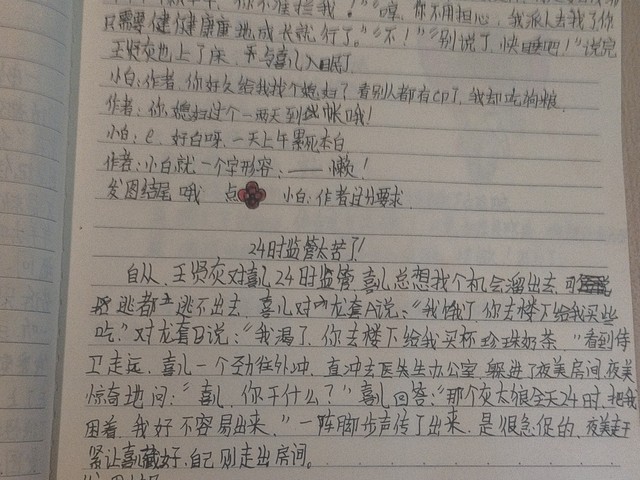 你不准拦我！”“哼，你不用担心，我派人去找了你
只需要健健康康地成长就行了。”“不！”“别说了，快睡吧！”说完
王贤灰也上了床，手与喜儿入眠了
小白：作者，你好久给我找个媳妇？看别人都有CP了，我却吃狗粮
作者：你媳妇过个一两天到账哦！
小白：e，好白呀，一天上午累死本白
作者：小白就一个字形容，——懒！
发图结尾哦 点 小白：作者过分要求
24时监管太苦了！
自从，王贤灰对喜儿24时监管，喜儿总想找个机会溜出去，可
逃都逃不出去，喜儿对龙套A说：“我饿了，你去楼下给我买些
吃。”对龙套B说：“我渴了，你去楼下给我买杯珍珠奶茶。”看到侍
卫走远，喜儿一个劲往外冲，直冲去医生办公室，躲进了夜美房间，夜美
惊奇地问：“喜儿，你干什么？”喜儿回答：“那个灰太狼全天24时，把我
困着，我好不容易出来，”一阵脚步声传了出来，是很急促的，夜美赶
紧让喜儿藏好，自己则走出房间。